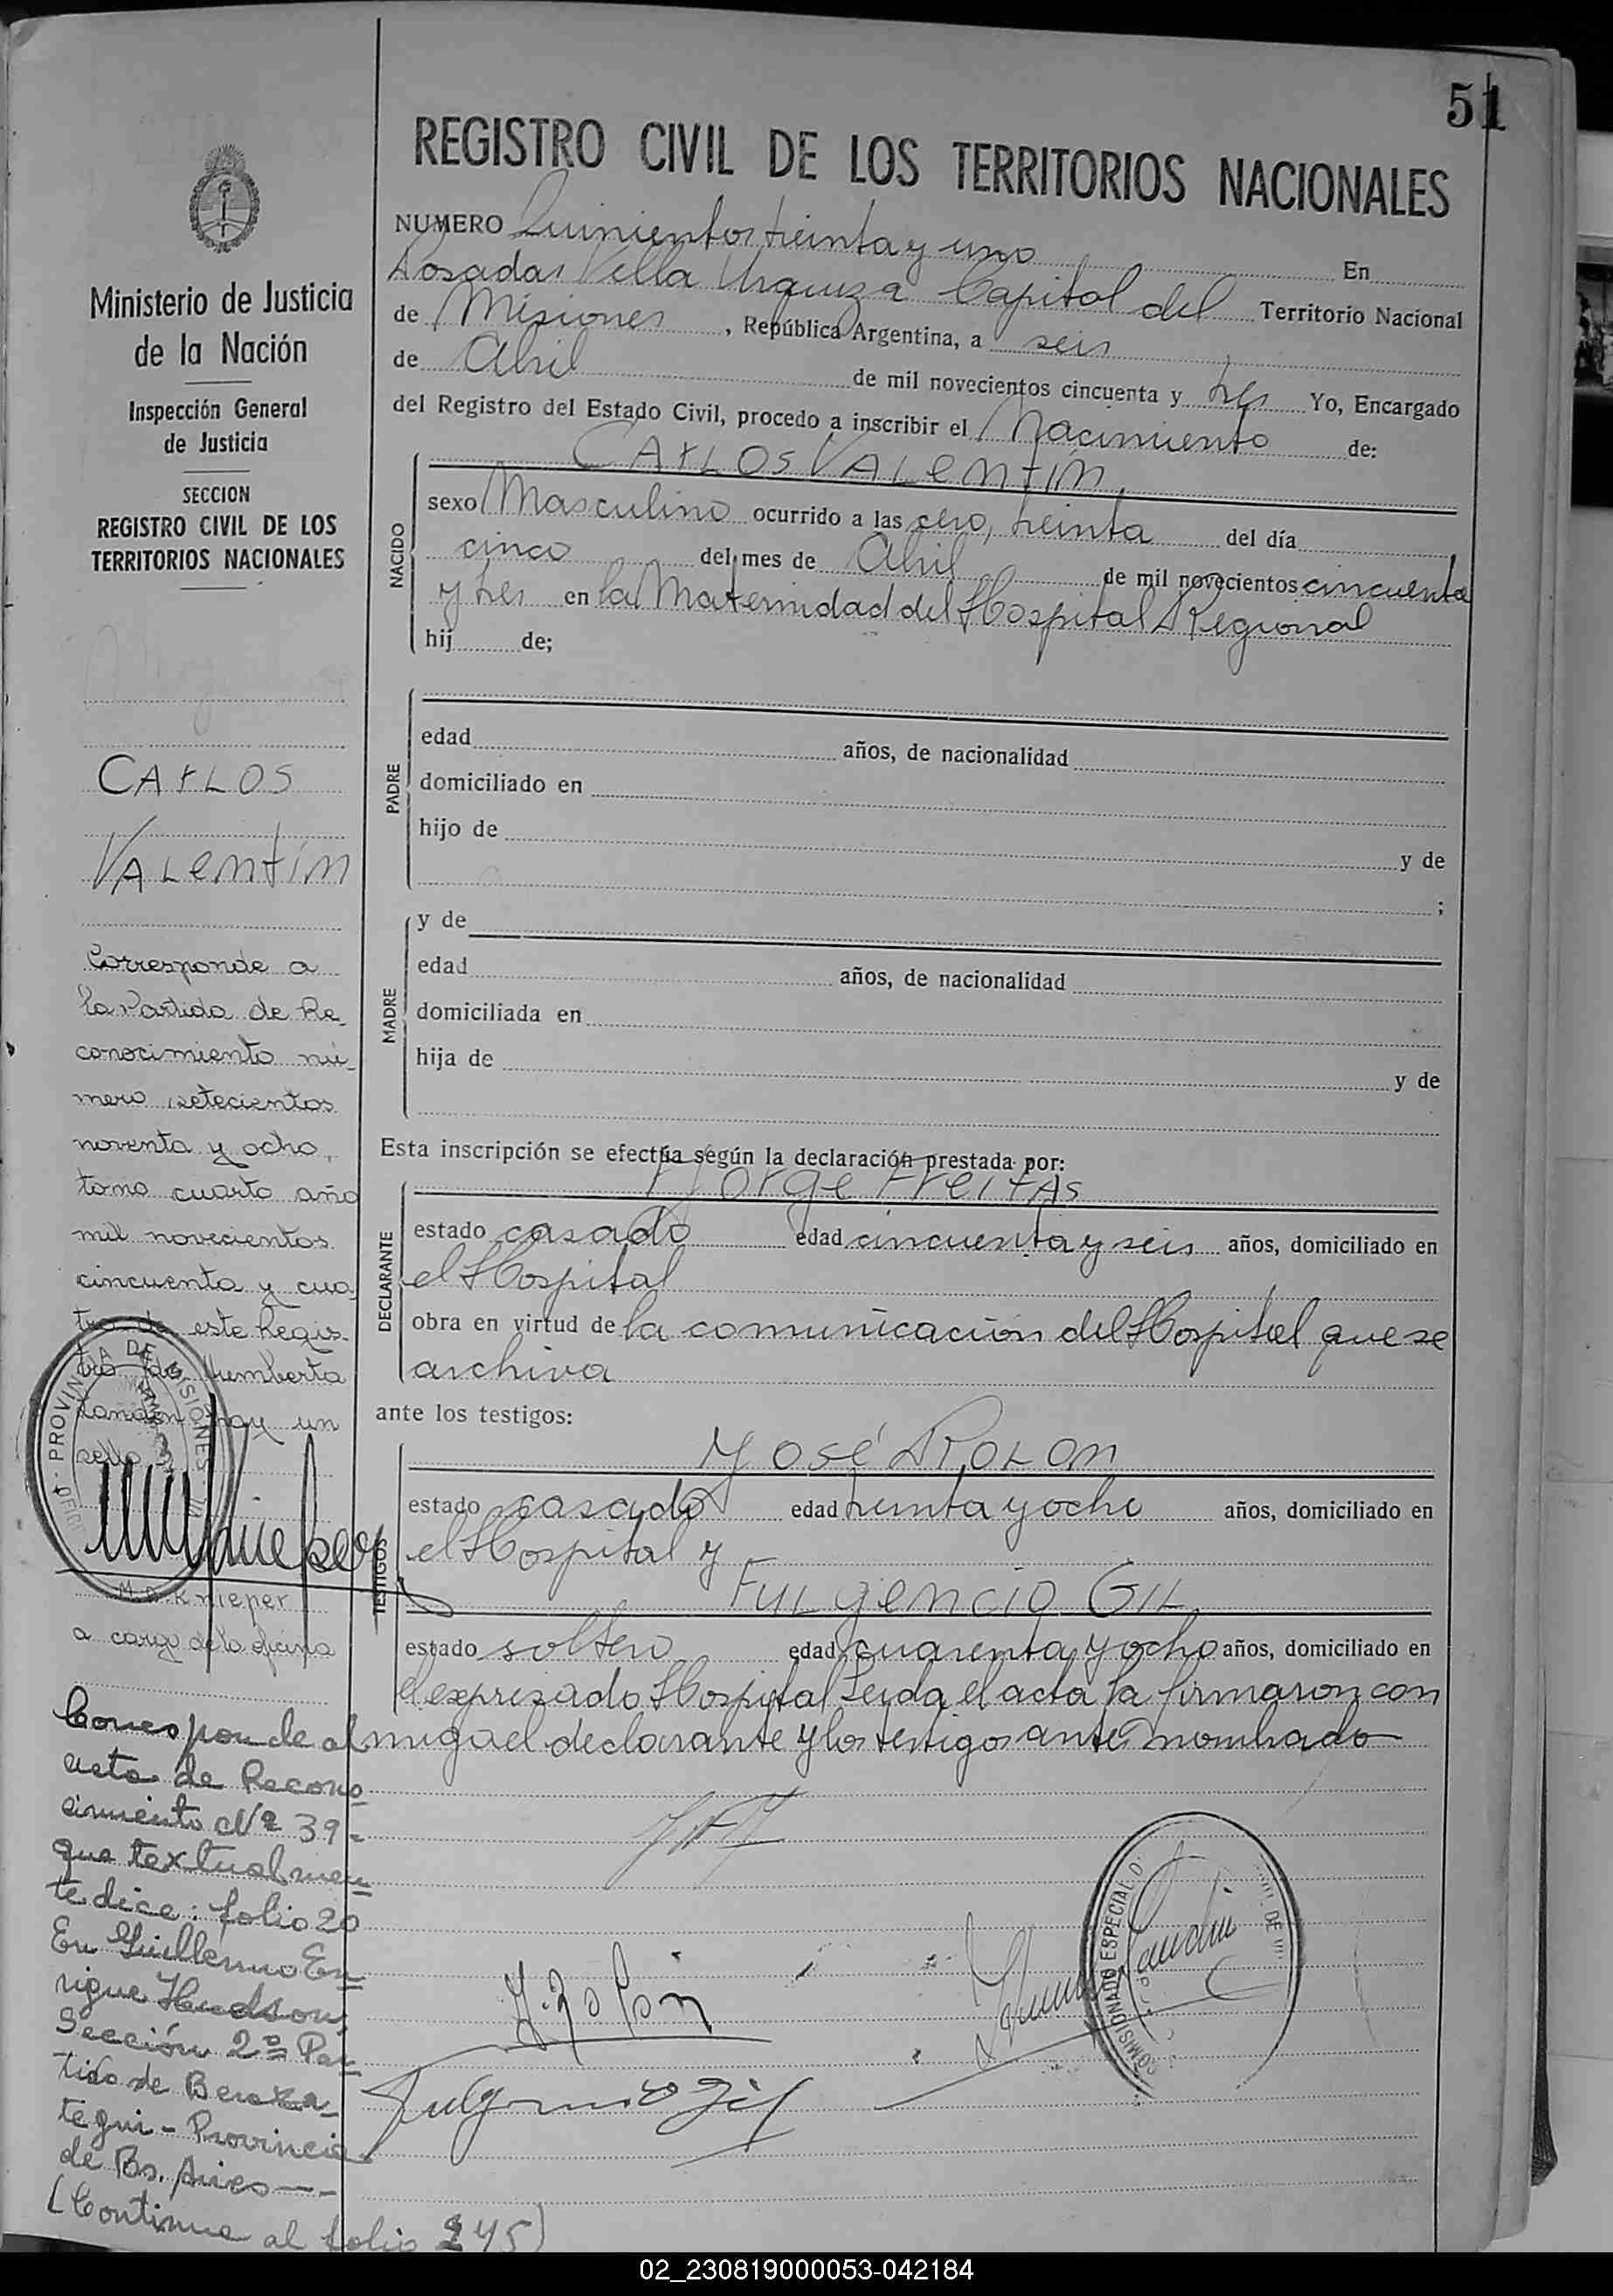 51
REGISTRO CIVIL DE LOS TERRITORIOS NACIONALES
NUMERO Quinientos treinta y uno En
Posadas Villa Urquiza Capital del Territorio Nacional
de Misiones, República Argentina, a seis
de Abril de mil novecientos cincuenta y tres Yo, Encargado
del Registro del Estado Civil, procedo a inscribir el Nacimiento de:
CARLOS VALENTÍN
NACIDO
sexo Masculino ocurrido a las cero, treinta del día
cinco del mes de Abril de mil novecientos cincuenta
y tres en la Maternidad del Hospital Regional
hij de;
PADRE
edad años, de nacionalidad
domiciliado en
hijo de y de
;
MADRE
y de
edad años, de nacionalidad
domiciliada en
hija de y de
Esta inscripción se efectúa según la declaración prestada por:
Jorge Freitas
DECLARANTE
estado casado edad cincuenta y seis años, domiciliado en
el Hospital
obra en virtud de la comunicación del Hospital que se
archiva
ante los testigos:
José Rolon
TESTIGOS
estado casado edad treinta y ocho años, domiciliado en
el Hospital y
Fulgencio Gil
estado soltero edad cuarenta y ocho años, domiciliado en
el expresado Hospital Leida el acta la firmaron con
migo el declarante y los testigos antes nombrado
J. Rolon
Fulgencio Gil
COMISIONADO ESPECIAL D
Ministerio de Justicia
de la Nación
Inspección General
de Justicia
SECCION
REGISTRO CIVIL DE LOS
TERRITORIOS NACIONALES
CARLOS
VALENTÍN
Corresponde a
la Partida de Re-
conocimiento nú-
mero setecientos
noventa y ocho,
tomo cuarto año
mil novecientos
cincuenta y cua-
tro de este Regis-
tro fdo. Humberto
Landin hay un
sello
PROVINCIA DE MISIONES
M. D. Knieper
a cargo de la oficina
Corresponde al
acta de Recono
cimiento Nº 39-
que textualmen
te dice: folio 20
En Guillermo En
rique Hudson,
Sección 2ª Par
tido de Beraza-
tegui - Provincia
de Bs. Aires --
(Continua al folio 245)
02_230819000053-042184